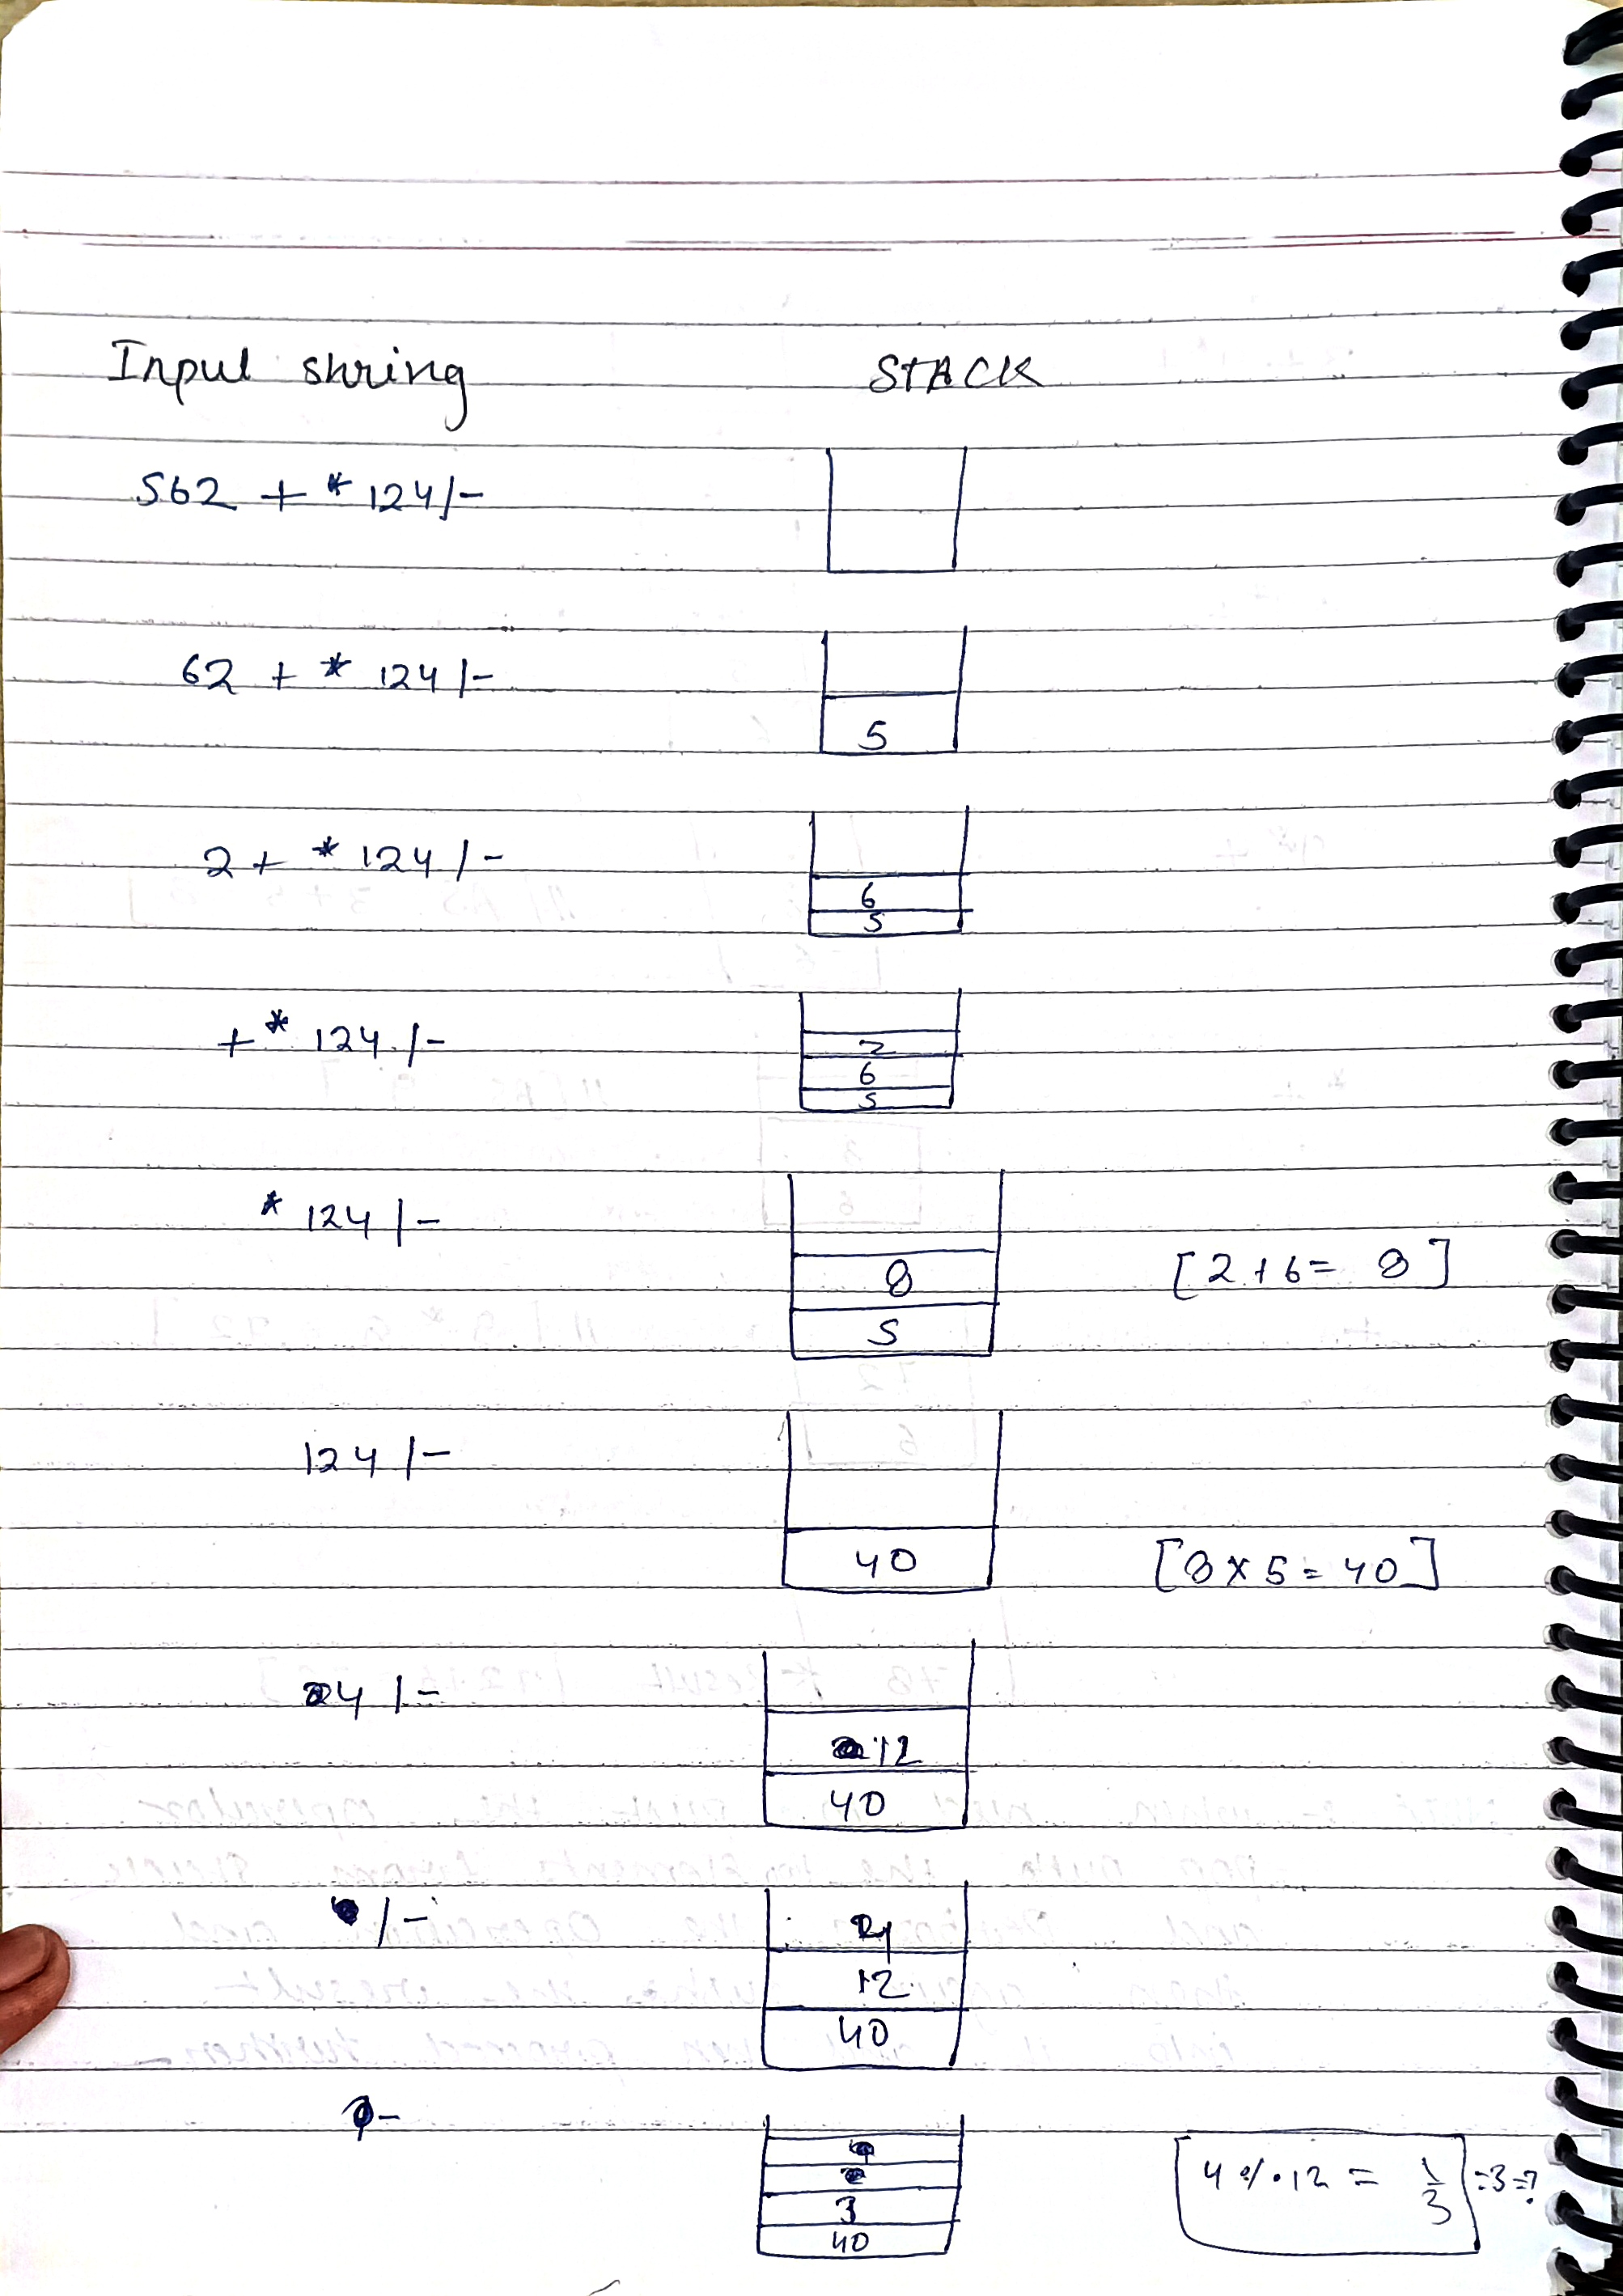 Input string STACK
562 + * 124/-
62 + * 124 /-
5
2 + * 124 / -
6
5
+ * 124 /-
2
6
5
* 124 / -
8 [2+6= 8]
5
124 /-
40 [8 x 5 = 40]
4 /-
12
40
/-
4
12
40
-
3 4 % 12 = 1/3 =3=?
40